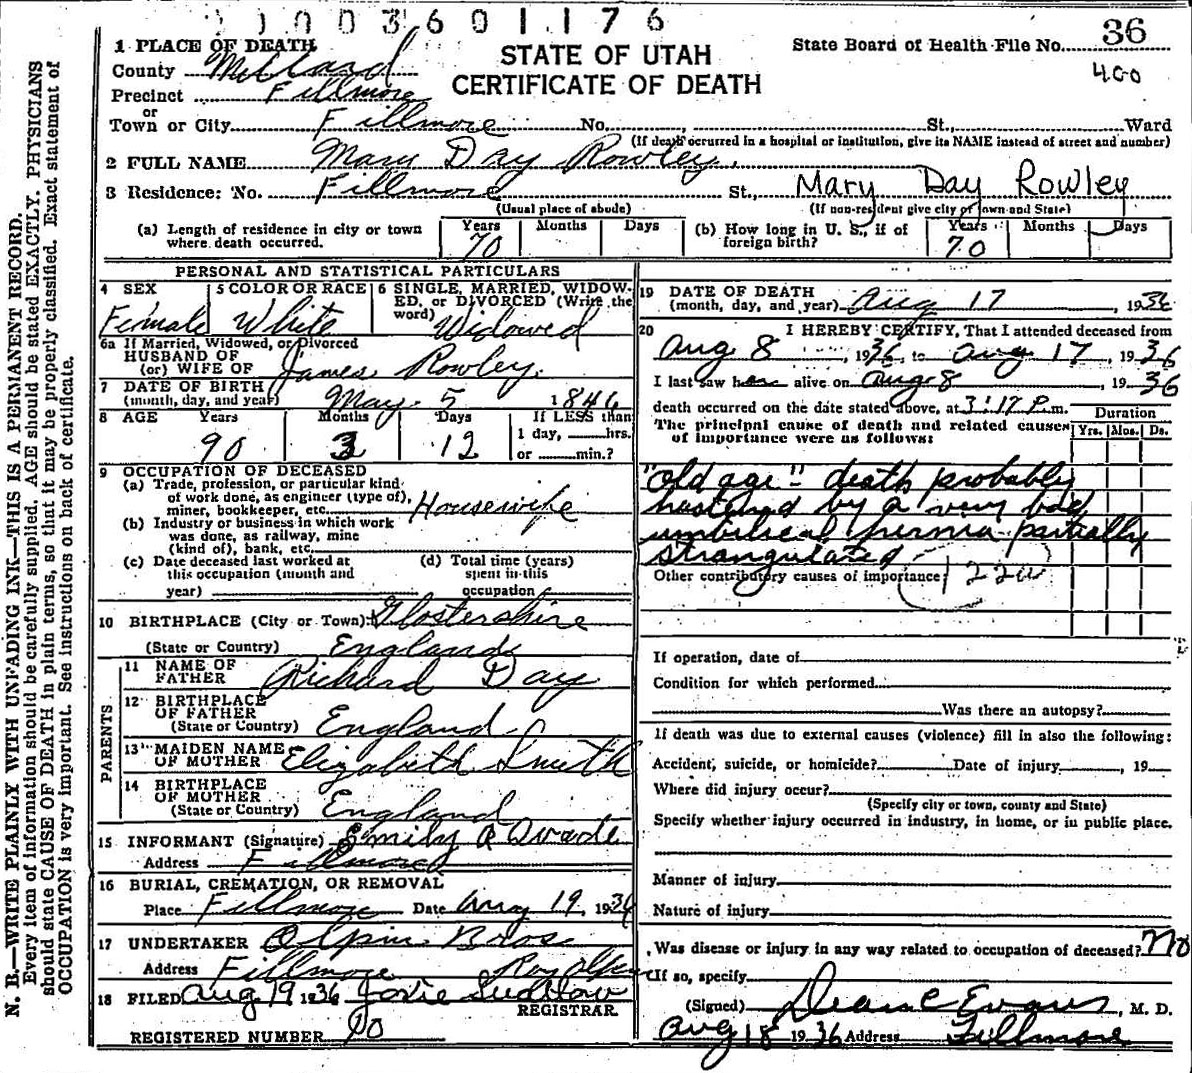 21003601176
36
400
STATE OF UTAH
CERTIFICATE OF DEATH
State Board of Health File No. 36
1 PLACE OF DEATH
County Millard
Precinct Fillmore
or
Town or City Fillmore No. St., Ward
(If death occurred in a hospital or institution, give its NAME instead of street and number)
2 FULL NAME Mary Day Rowley
3 Residence: No. Fillmore St., Mary Day Rowley
(Usual place of abode) (If non-resident give city or town and State)
(a) Length of residence in city or town where death occurred. Years 70 Months Days (b) How long in U. S., if of foreign birth? Years 70 Months Days
PERSONAL AND STATISTICAL PARTICULARS
4 SEX Female
5 COLOR OR RACE White
6 SINGLE, MARRIED, WIDOWED, or DIVORCED (Write the word) Widowed
6a If Married, Widowed, or Divorced
HUSBAND OF
(or) WIFE OF James Rowley
7 DATE OF BIRTH
(month, day, and year) May 5 1846
8 AGE Years 90 Months 3 Days 12 If LESS than 1 day, hrs. or min.?
9 OCCUPATION OF DECEASED
(a) Trade, profession, or particular kind of work done, as engineer (type of), miner, bookkeeper, etc. Housewife
(b) Industry or business in which work was done, as railway, mine (kind of), bank, etc.
(c) Date deceased last worked at this occupation (month and year)
(d) Total time (years) spent in this occupation
10 BIRTHPLACE (City or Town) Glostershire
(State or Country) England
PARENTS
11 NAME OF FATHER Richard Day
12 BIRTHPLACE OF FATHER
(State or Country) England
13 MAIDEN NAME OF MOTHER Elizabeth Smith
14 BIRTHPLACE OF MOTHER
(State or Country) England
15 INFORMANT (Signature) Emily
Address Fillmore
16 BURIAL, CREMATION, OR REMOVAL
Place Fillmore Date Aug 19, 1936
17 UNDERTAKER Olpin Bros
Address Fillmore Roy Olpin
18 FILED Aug 19 1936 Josie Ludlow
REGISTRAR.
REGISTERED NUMBER
19 DATE OF DEATH
(month, day, and year) Aug 17 1936
20 I HEREBY CERTIFY, That I attended deceased from
Aug 8, 1936, to Aug 17, 1936
I last saw her alive on Aug 8, 1936
death occurred on the date stated above, at 3:17 P.m.
The principal cause of death and related causes of importance were as follows:
Duration
Yrs. Mos. Ds.
"old age" - death probably
hastened by a very bad
umbilical hernia partially
strangulated
Other contributory causes of importance: 122a
If operation, date of
Condition for which performed
Was there an autopsy?
If death was due to external causes (violence) fill in also the following:
Accident, suicide, or homicide? Date of injury, 19
Where did injury occur?
(Specify city or town, county and State)
Specify whether injury occurred in industry, in home, or in public place.
Manner of injury
Nature of injury
Was disease or injury in any way related to occupation of deceased? no
If so, specify
(Signed) Deane Evans, M. D.
Aug 18 1936 Address Fillmore
N. B.—WRITE PLAINLY WITH UNFADING INK—THIS IS A PERMANENT RECORD.
Every item of information should be carefully supplied. AGE should be stated EXACTLY. PHYSICIANS
should state CAUSE OF DEATH in plain terms, so that it may be properly classified. Exact statement of
OCCUPATION is very important. See instructions on back of certificate.